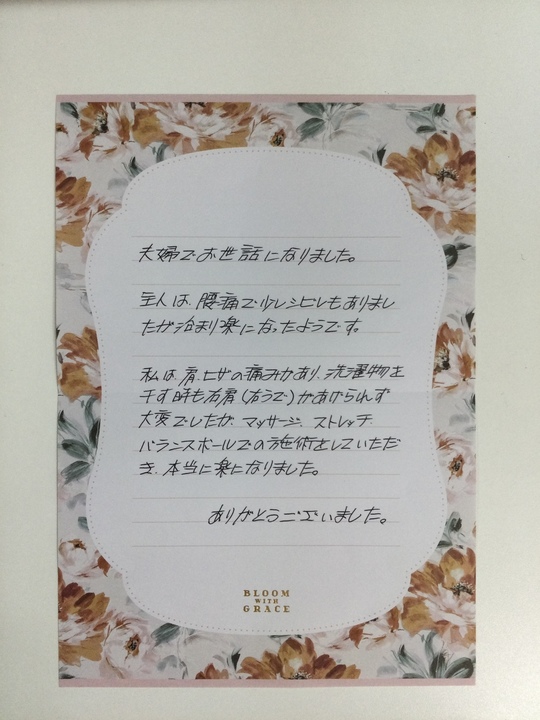 夫婦でお世話になりました。
主人は、腰痛で少しシビレもありまし
たが治まり楽になったようです。
私は、肩、ヒザの痛みがあり、洗濯物を
干す時も右肩(右うで)があげられず
大変でしたが、マッサージ、ストレッチ、
バランスボールでの施術をしていただ
き、本当に楽になりました。
ありがとうございました。
BLOOM
WITH
GRACE